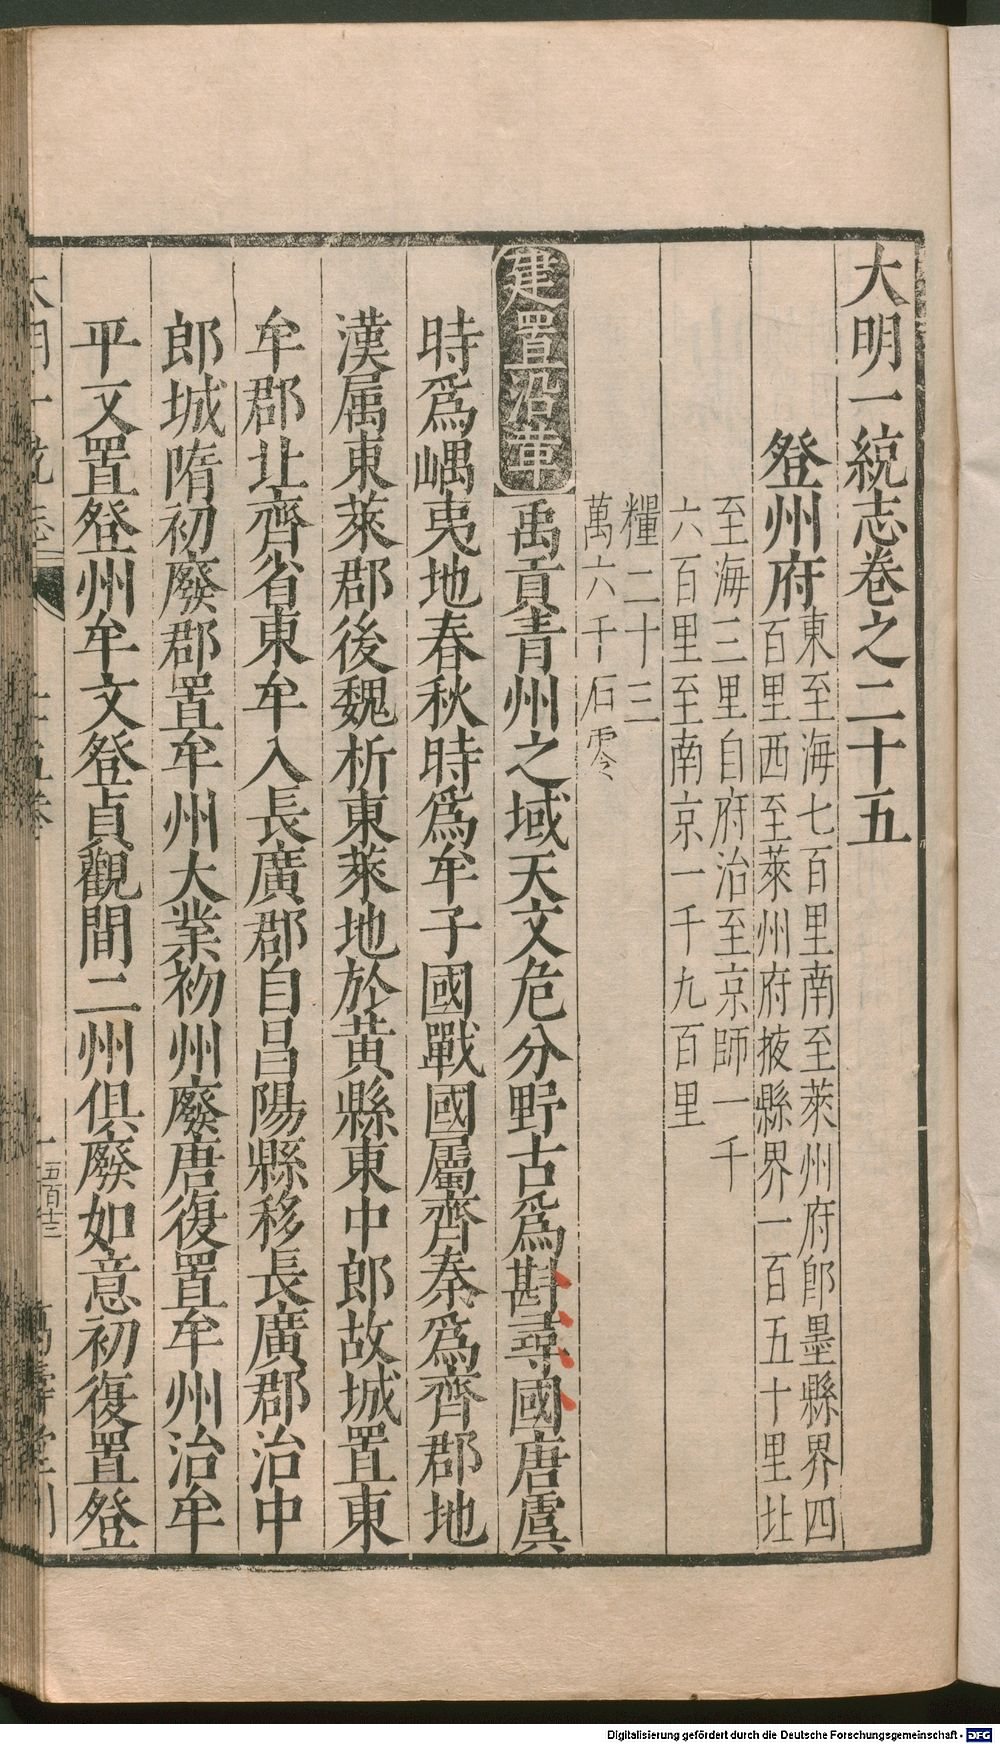 大明一統志卷之二十五
登州府東至海七百里南至萊州府卽墨縣界四
百里西至萊州府掖縣界一百五十里北
至海三里自府治至京師一千
六百里至南京一千九百里
糧二十三
萬六千石零
建置沿革禹貢青州之域天文危分野古爲斟尋國唐虞
時爲嵎夷地春秋時爲牟子國戰國屬齊秦爲齊郡地
漢属東萊郡後魏析東萊地於黃縣東中郎故城置東
牟郡北齊省東牟入長廣郡自昌陽縣移長廣郡治中
郎城隋初廢郡置牟州大業初州廢唐復置牟州治牟
平又置登州牟文登貞觀間二州俱廢如意初復置登
大明一統志
五百十三
萬壽堂刊
Digitalisierung gefördert durch die Deutsche Forschungsgemeinschaft - DFG